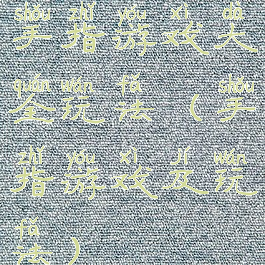 shǒu zhǐ yóu xì dà
手指游戏大
quán wán fǎ shǒu
全玩法(手
zhǐ yóu xì jí wán
指游戏及玩
fǎ
法)